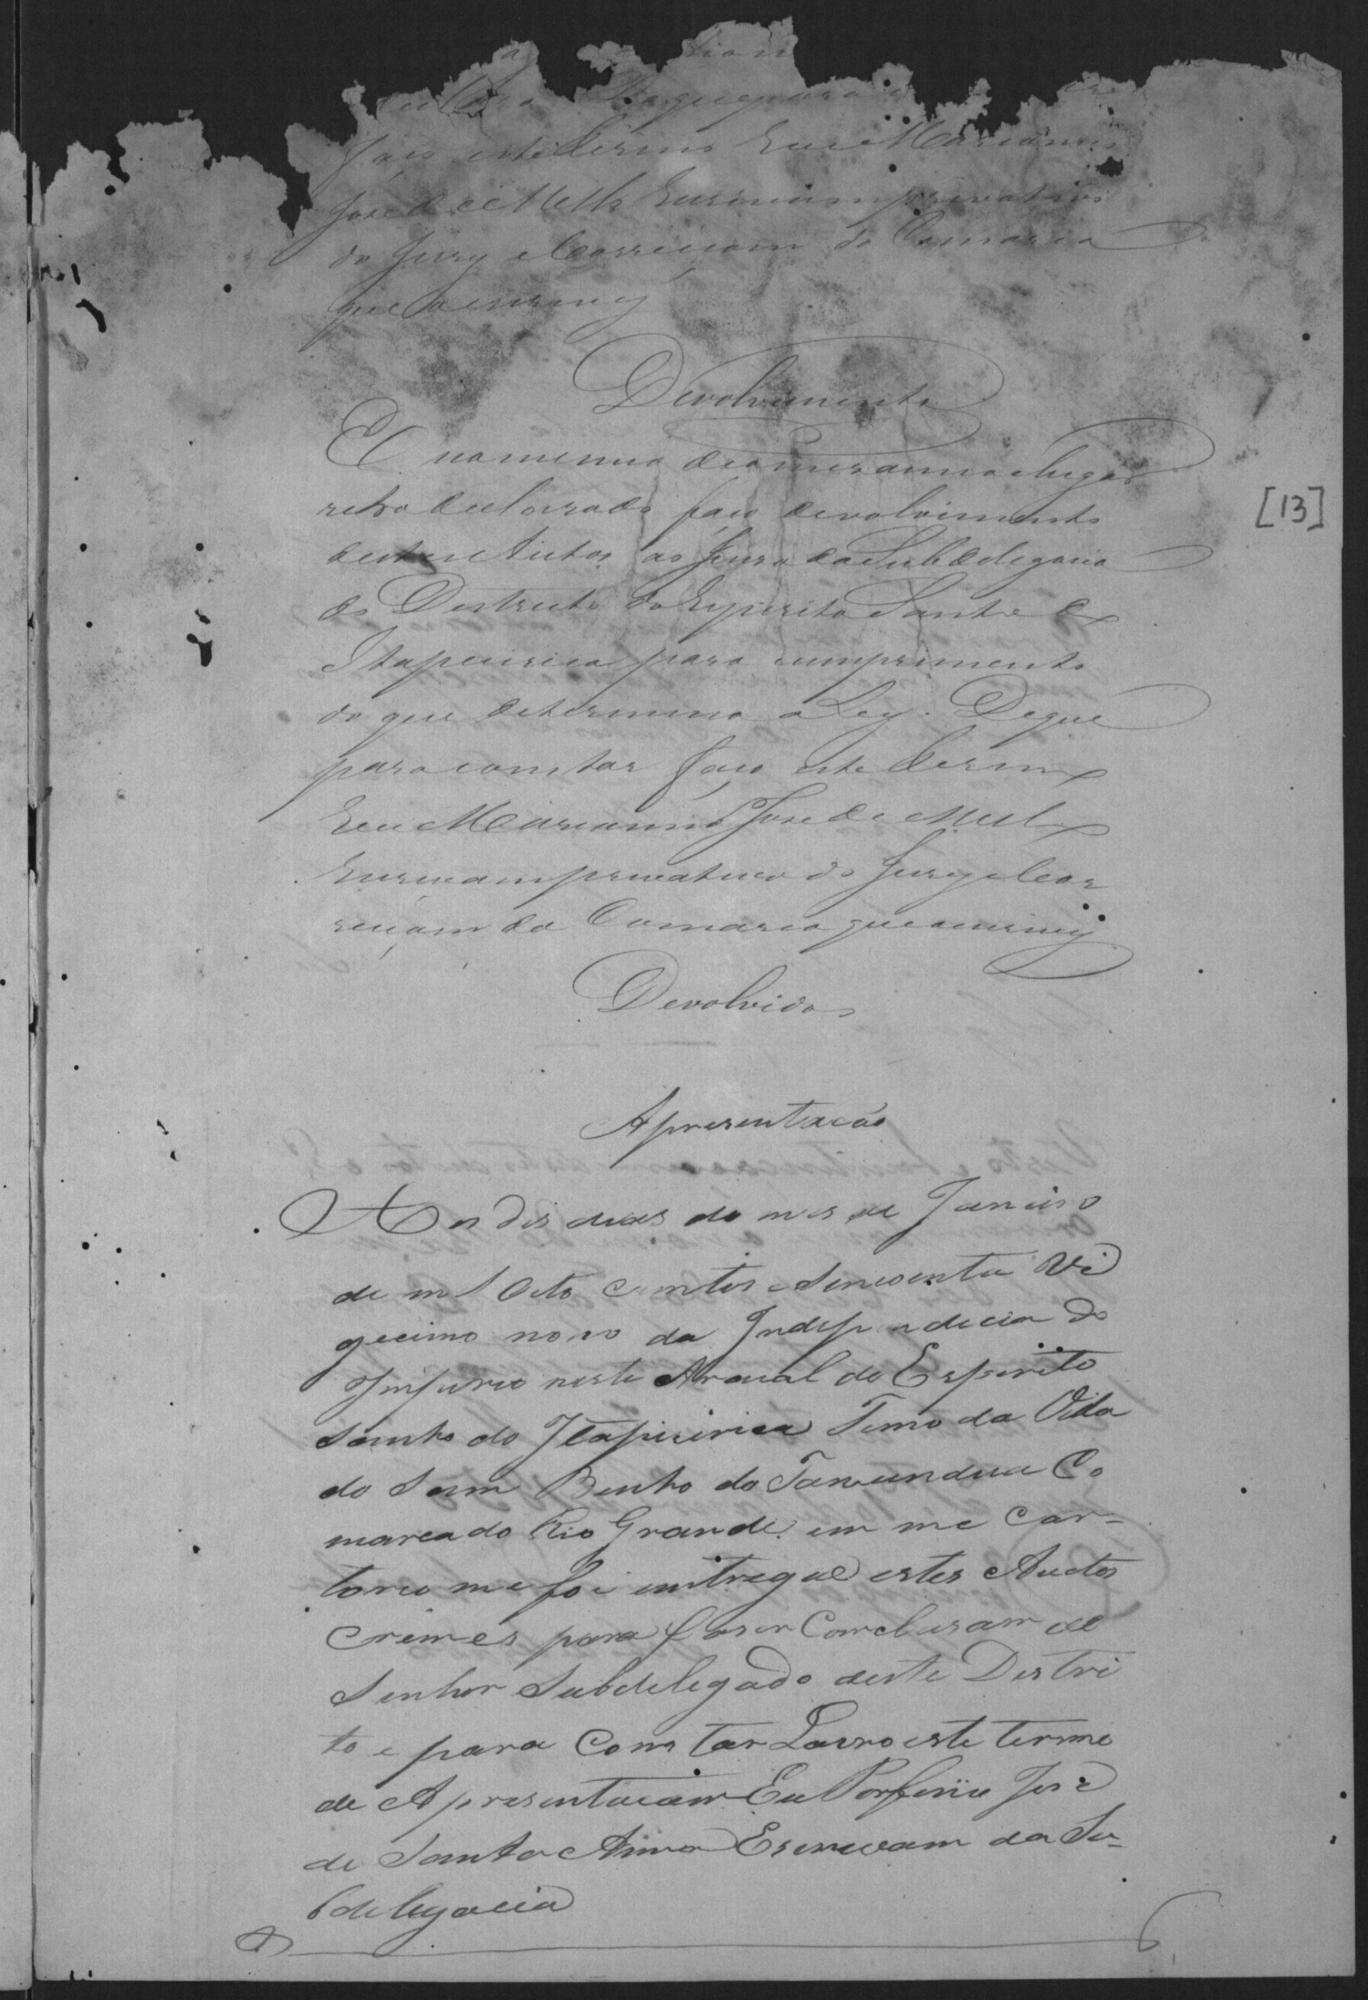 De que para
faço este termo Eu Marianno
José de Mello Escrivam privativo
do Jury e Correiçam da Comarca
que a escrevy
Devolvimento
E no mesmo dia mes anno e lugar
retro declarado faço devolvimento
destes Autos ao Juizo da Subdelegacia
do Destricto do Espirito Santo de
Itapecirica para cumprimento
do que determina a Ley. De que
para constar faço este termo
Eu Marianno José de Mello
Escrivam privativo do Jury e Cor
reiçam da Comarca que a escrevy
Devolvidos
[13]
Apresentacão
Aos dis dias do mes de Janeiro
de mil Oito centos e sincoenta Vi
gecimo nono da Independecia do
Imperio neste Arraial do Espirito
Santo do Itapicirica Termo da Villa
do Sam Bento do Tamandua Co
marca do Rio Grande em me Car-
torio me foi entregue estes Autos
Crimes para faser Comclusam ao
Senhor Subdelegado deste Destri
to e para Constar Lavro este termo
de Apresentacam Eu Porfirio José
de Santa Anna Escrevam da Su-
bdelegacia